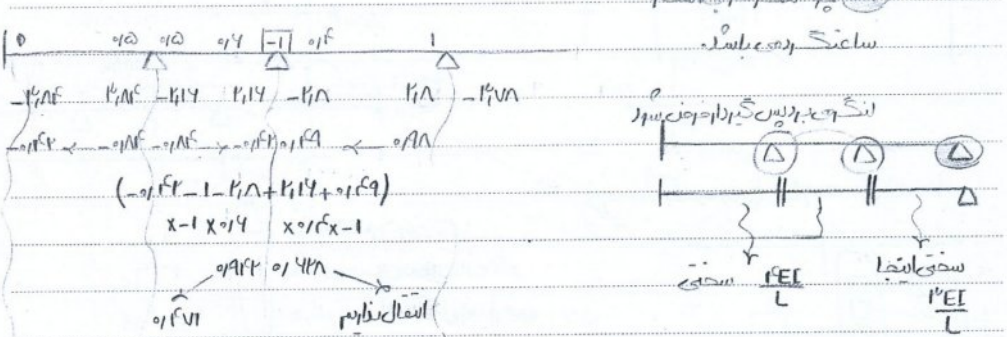 ساعتگرد می‌باشد.
0 ۰٫۵ ۰٫۵ ۰٫۶ -1 ۰٫۴ 1
-۳٫۸۴ ۳٫۸۴ -۲٫۱۶ ۲٫۱۶ -۲٫۸ ۲٫۸ -۳٫۷۸
-۰٫۴۲ ← -۰٫۸۴ -۰٫۸۴ → -۰٫۴۲ ۰٫۴۹ ← ۰٫۹۸
(-۰٫۴۲-1-۲٫۸+۲٫۱۶+۰٫۴۹)
x-1 x۰٫۶ x۰٫۴x-1
۰٫۹۴۲ ۰٫۶۲۸
۰٫۴۷۱ انتقال نداریم
گیردار فرض شود
سختی ۴EI/L
سختی اینجا ۳EI/L